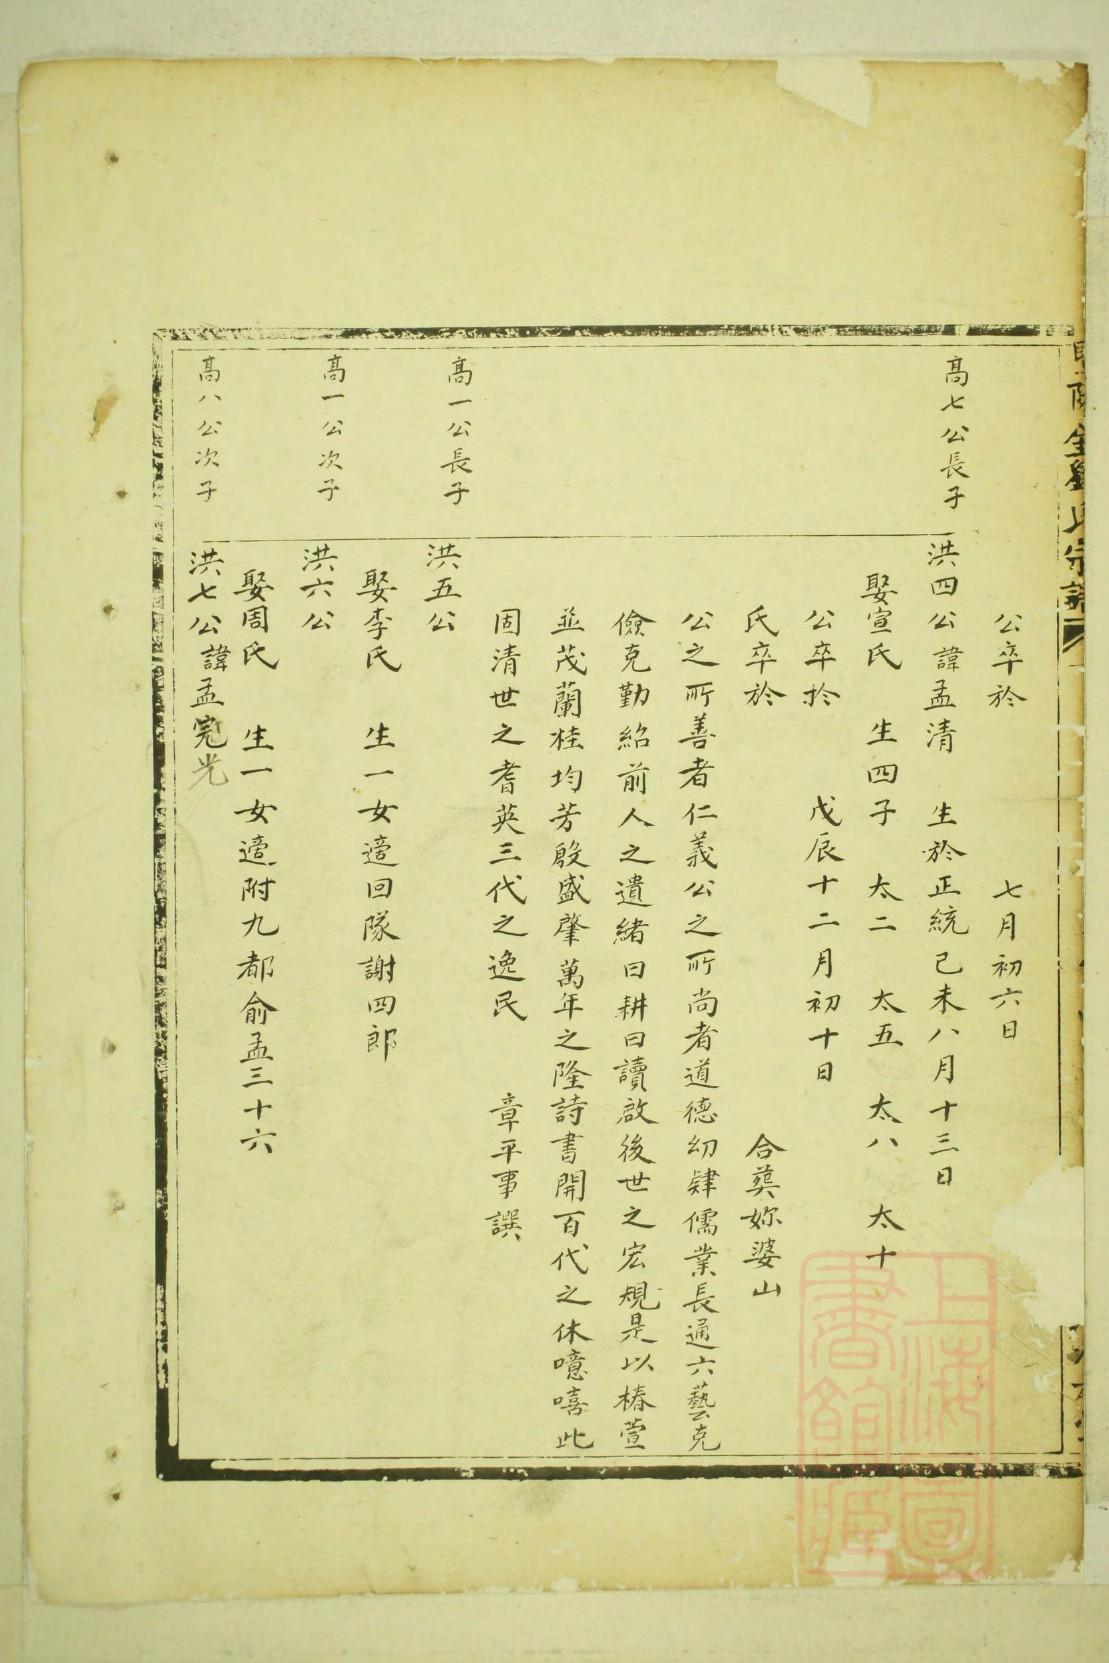 公卒於 七月初六日
高七公長子
洪四公諱孟清 生於正統己未八月十三日
娶宣氏 生四子 太二 太五 太八 太十
公卒於 戊辰十二月初十日
氏卒於 合葬妳婆山
公之所善者仁義公之所尚者道德幼肄儒業長通六藝克
儉克勤紹前人之遺緒曰耕曰讀啟後世之宏規是以椿萱
並茂蘭桂均芳殷盛肇萬年之隆詩書開百代之休噫嘻此
固清世之耆英三代之逸民 章平事譔
高一公長子
洪五公
娶李氏 生一女適回隊謝四郎
高一公次子
洪六公
娶周氏 生一女適附九都俞孟三十六
高八公次子
洪七公諱孟完光
上海圖書館藏